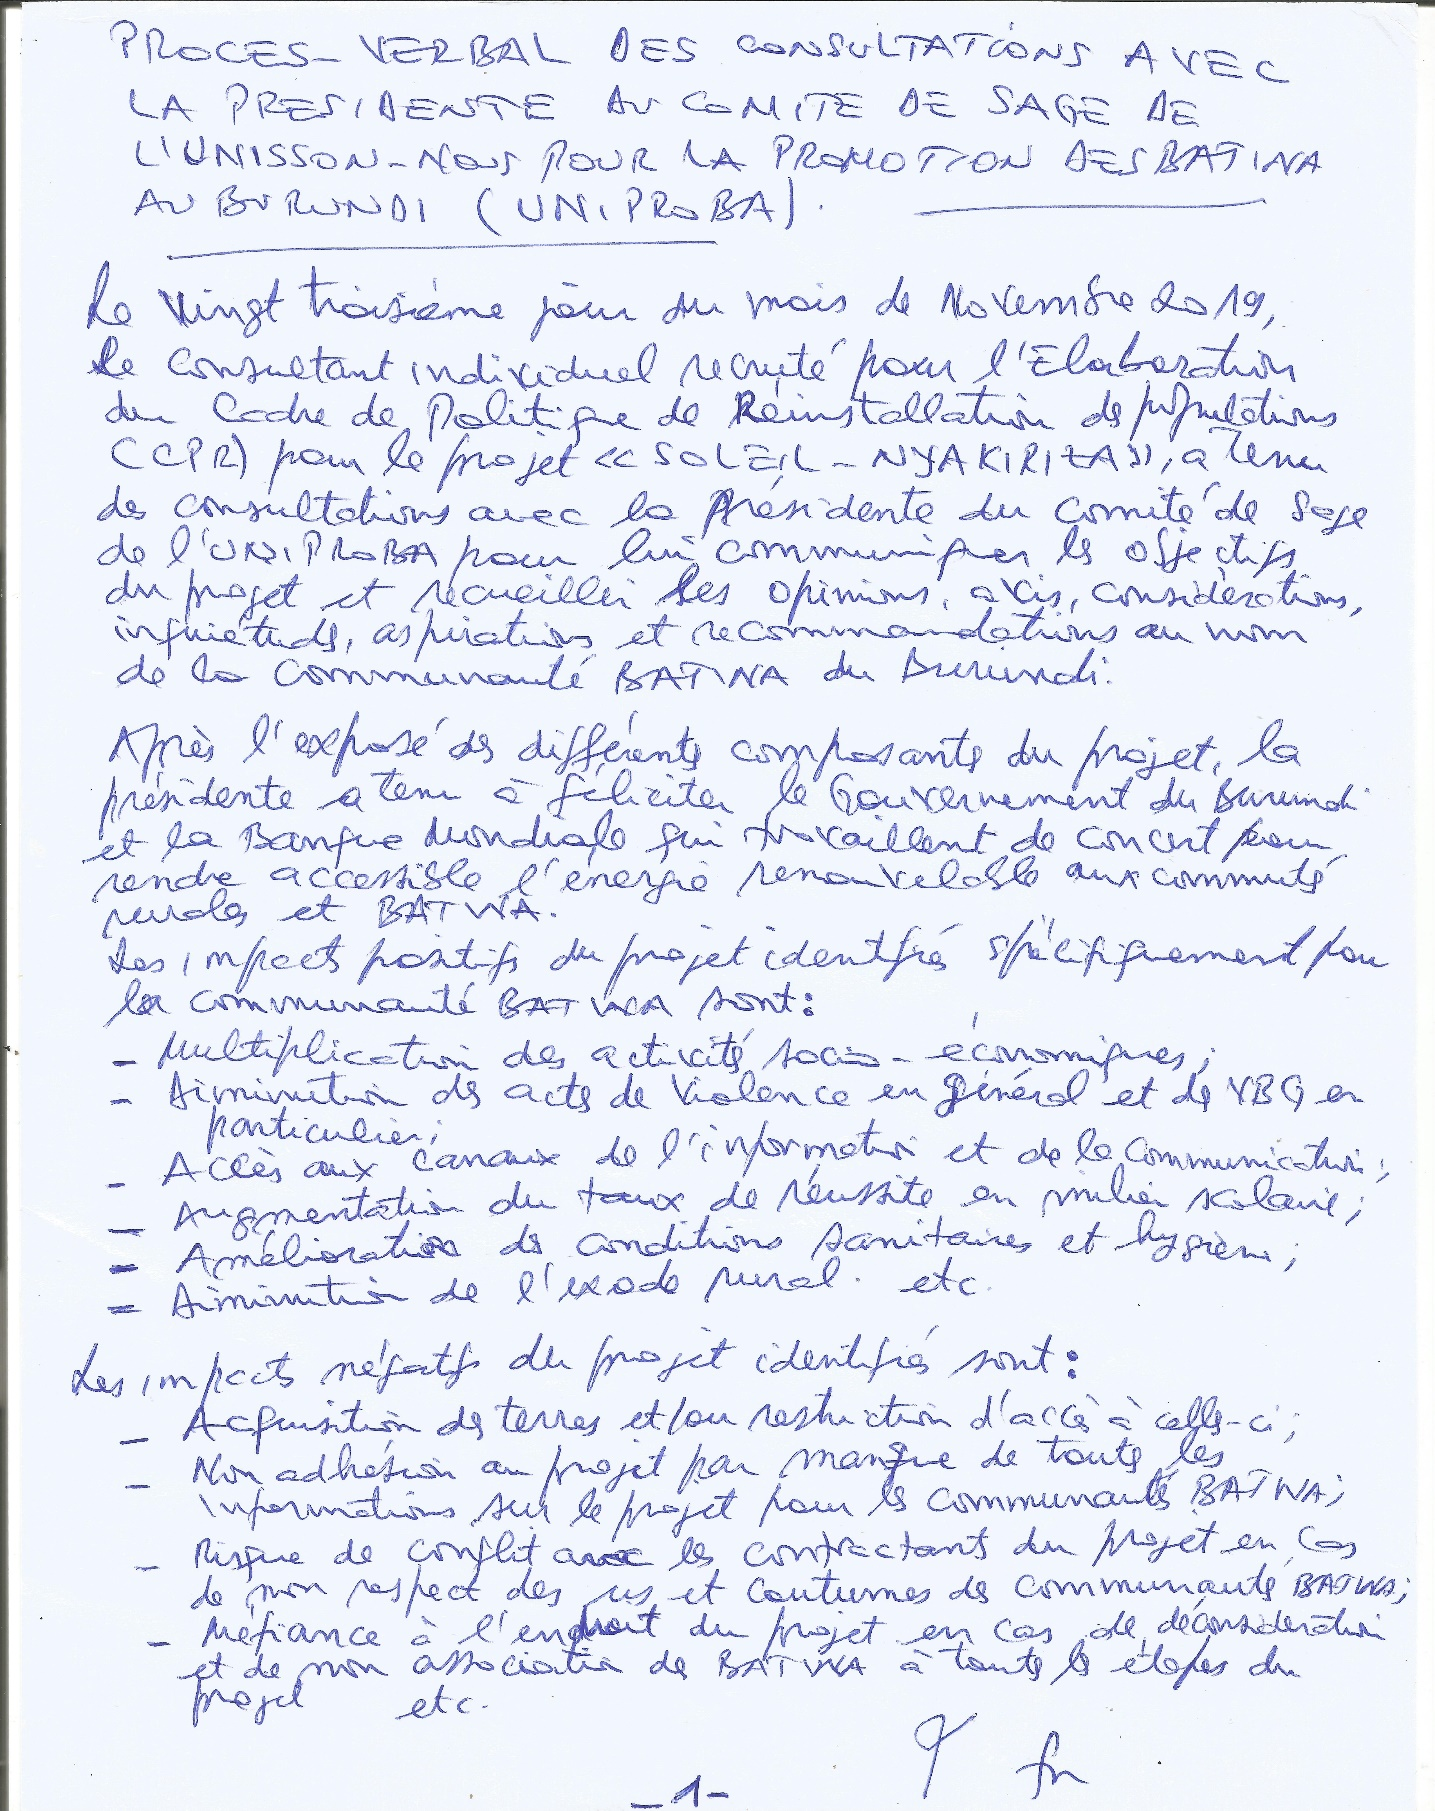 PROCES-VERBAL DES CONSULTATIONS AVEC
LA PRESIDENTE DU COMITE DE SAGE DE
L'UNISSON-NOUS POUR LA PROMOTION DES BATWA
AU BURUNDI (UNIPROBA).
Le Vingt troisième jour du mois de Novembre 2019,
Le Consultant individuel recruté pour l'Elaboration
du Cadre de Politique de Réinstallation de populations
(CPR) pour le projet «SOLEIL-NYAKIRIZA», a tenu
des consultations avec la Présidente du Comité de Sage
de l'UNIPROBA pour lui communiquer les objectifs
du projet et recueillir les opinions, avis, considérations,
inquiétudes, aspirations et recommandations au nom
de la Communauté BATWA du Burundi.
Après l'exposé des différents composants du projet, la
présidente a tenu à féliciter le Gouvernement du Burundi
et la Banque Mondiale qui travaillent de concert pour
rendre accessible l'énergie renouvelable aux commutés
rurales et BATWA.
Les impacts positifs du projet identifiés spécifiquement pour
la communauté BATWA sont:
- Multiplication des activités socio-économiques;
- Diminution des actes de Violence en général et de VBG en
particulier;
- Accès aux canaux de l'information et de la communication;
- Augmentation du taux de réussite en milieu scolaire;
- Amélioration des conditions sanitaires et hygiène;
- Diminution de l'exode rural. etc.
Les impacts négatifs du projet identifiés sont:
- Acquisition des terres et/ou restriction d'accès à celles-ci;
- Non adhésion au projet par manque de toutes les
informations sur le projet pour les communautés BATWA;
- Risque de conflit avec les contractants du projet en cas
de non respect des us et coutumes des communautés BATWA;
- Méfiance à l'endroit du projet en cas de déconsidération
et de non association des BATWA à toutes les étapes du
projet etc.
-1-